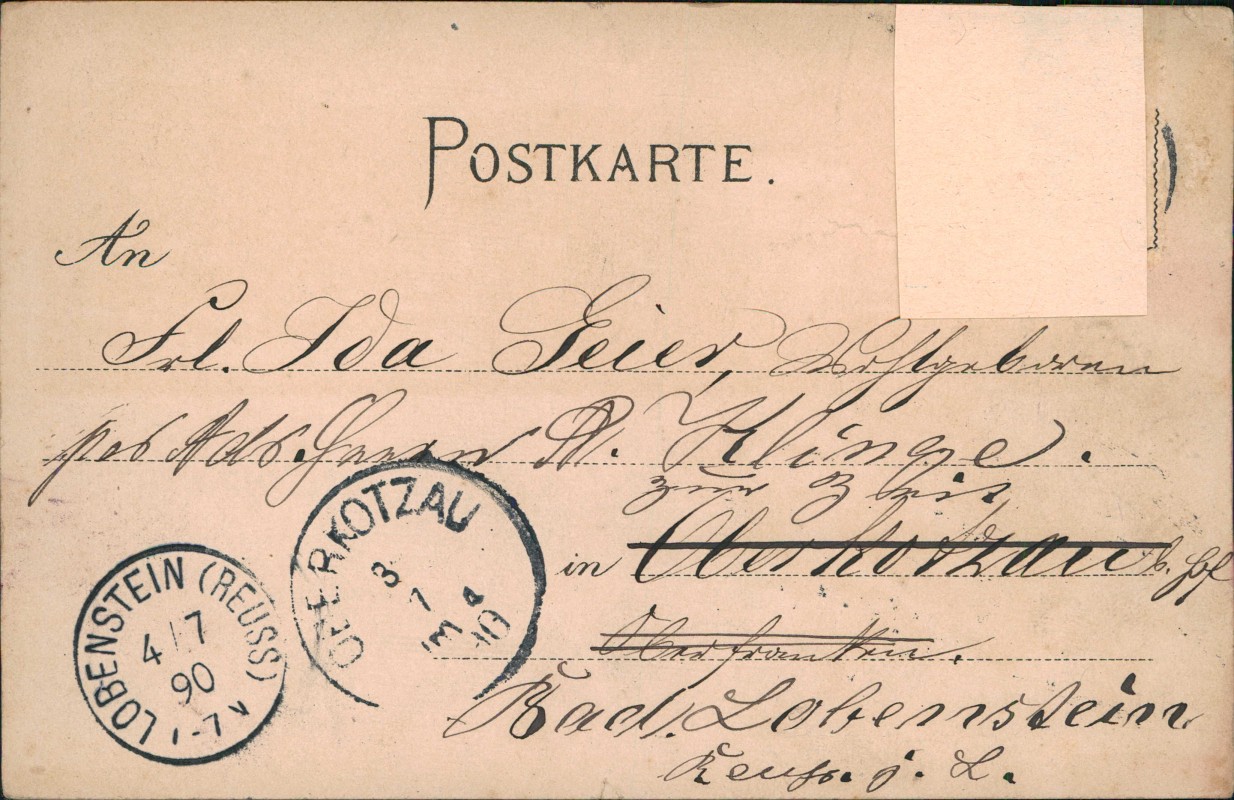 POSTKARTE.
An
Frl. Ida Geier, Wohlgeboren
per Adr. Herrn A. Klinge.
zur Zeit
in Oberkotzau b. Hof
Oberfranken.
Bad Lobenstein
Reuss. j. L.
OBERKOTZAU
3
7
LOBENSTEIN (REUSS)
4 7
90
1-7N